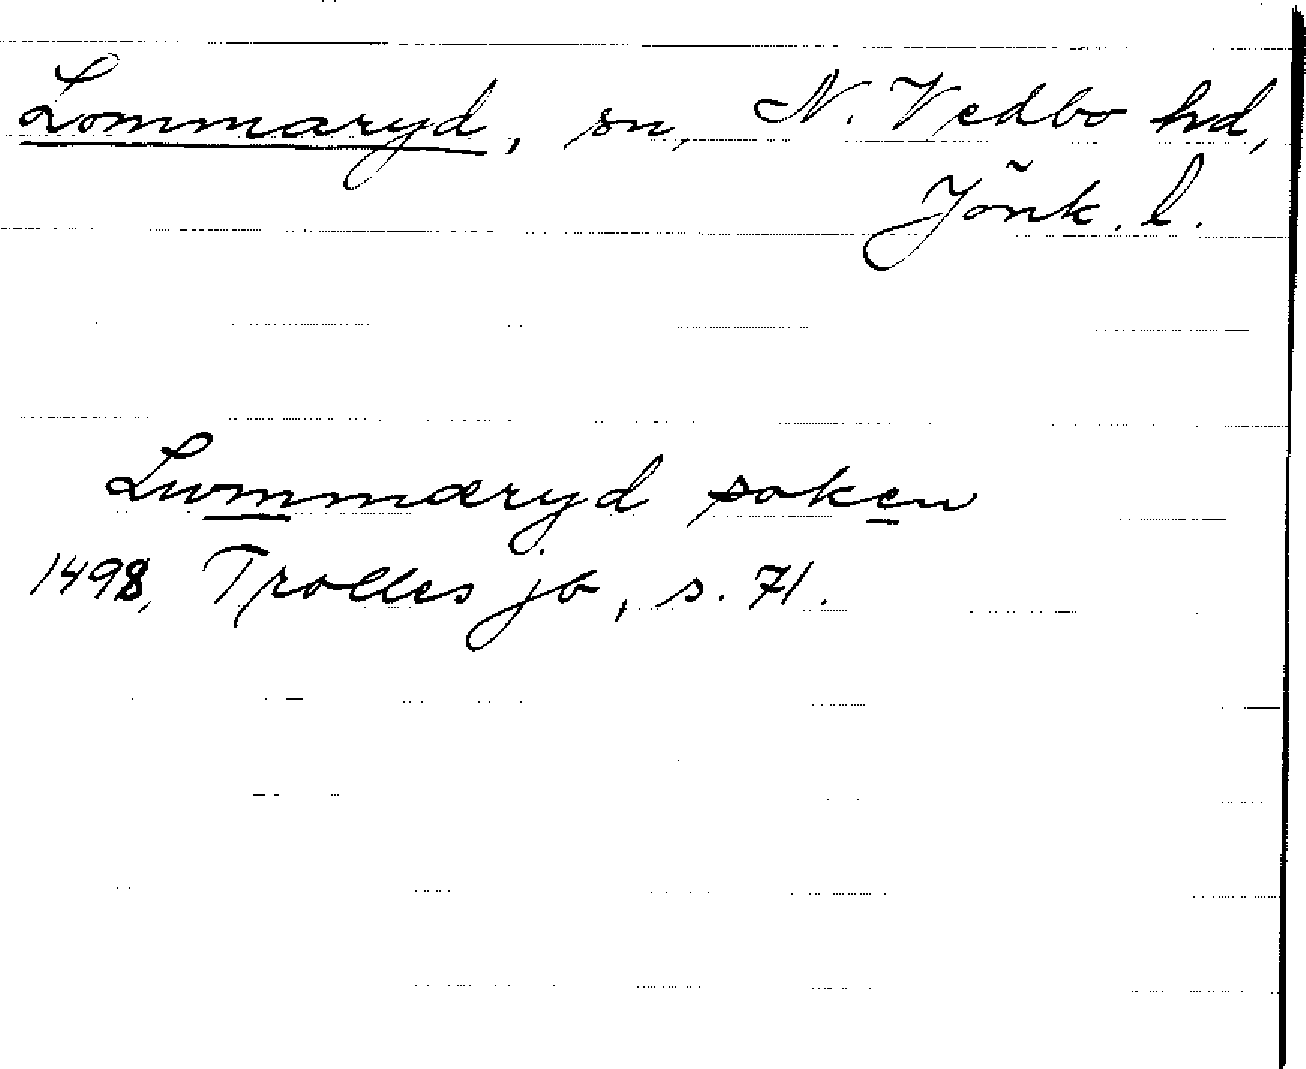 Lommaryd, sn, N. Vedbo hd,
Jönk. l.
Lwmmæryd soken
1498, Trolles jb, s. 71.